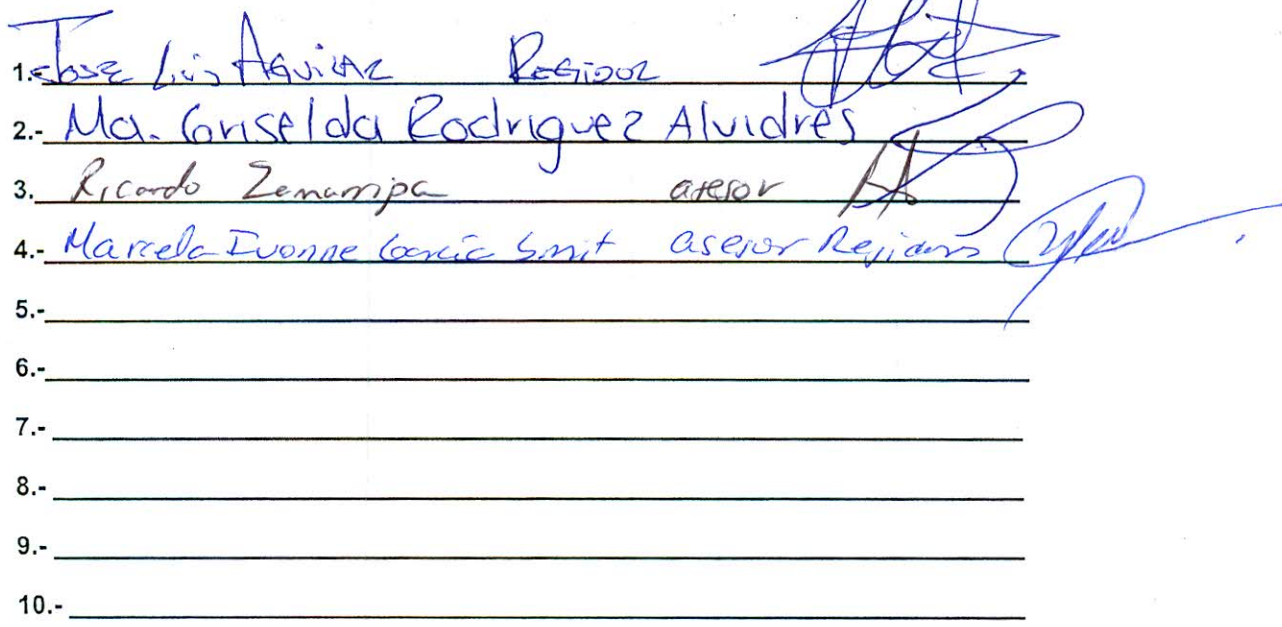 1.- Jose Luis Aguilar Regidor
2.- Ma. Griselda Rodriguez Alvidres
3. Ricardo asesor
4.- Marcela Ivonne García Smit asesor
5.-
6.-
7.-
8.-
9.-
10.-